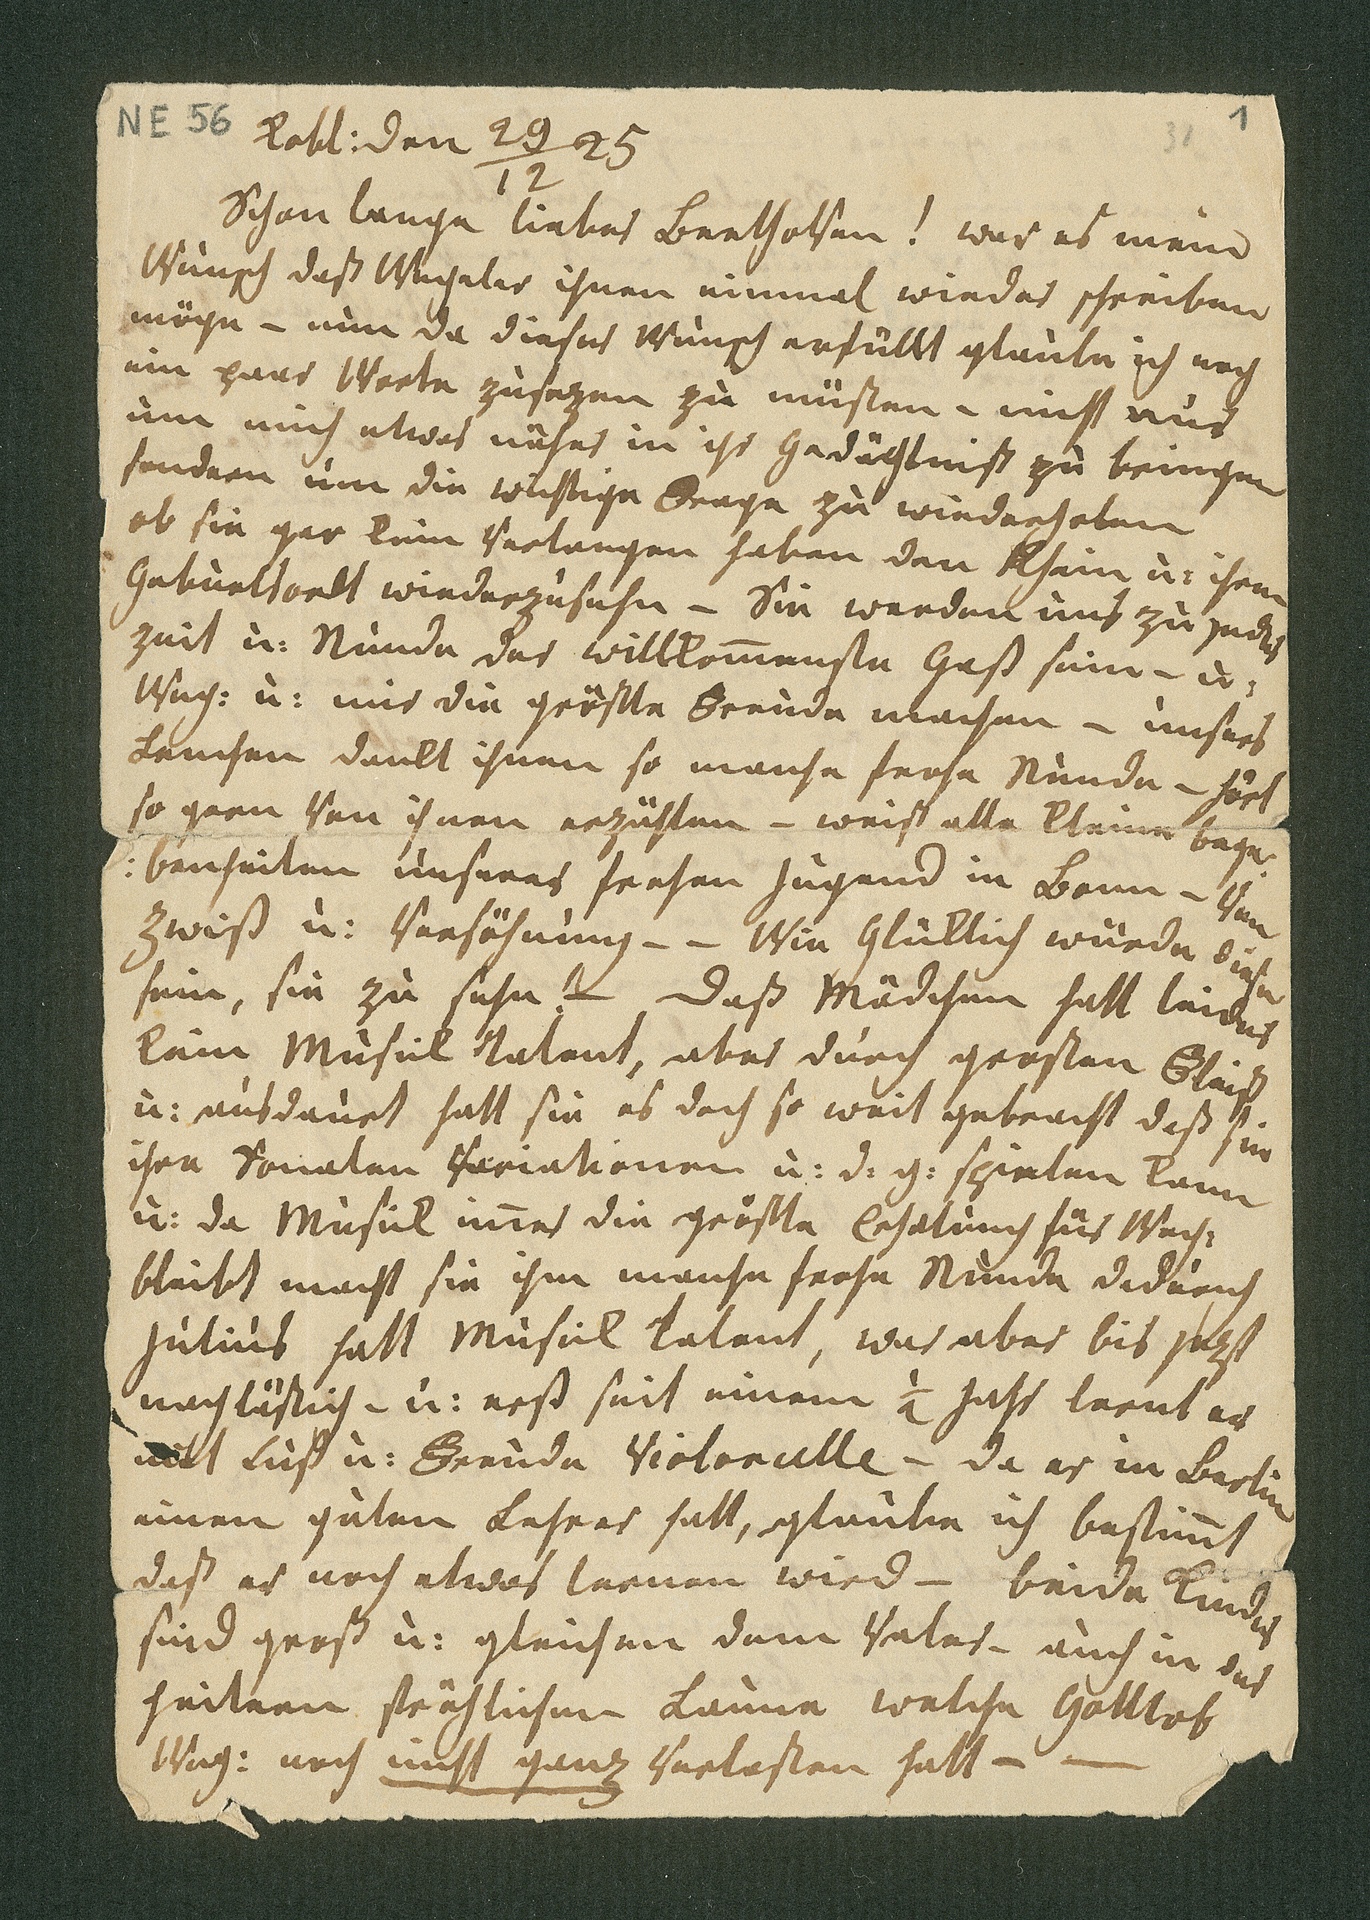 NE 56
1
31
Kobl: den 29/12 25
Schon lange lieber Beethoven! war es mein
Wunsch daß Wegeler ihnen einmal wieder schreiben
möge – nun da dieser Wunsch erfüllt glaube ich noch
ein paar Worte zusezen zu müßen – nicht nur
um mich etwas näher in ihr Gedächtniß zu bringen
sondern um die wichtige Frage zu wiederholen
ob sie gar kein Verlangen haben den Rhein u: ihren
Geburtsort wiederzusehn – Sie werden uns zu jeder
Zeit u: Stunde der willkom̅enste Gast sein – u:
Weg: u: mir die größte Freude machen – unser
Lenchen dankt ihnen so manche frohe Stunde – hört
so gern von ihnen erzählen – weiß alle kleine bege:
:benheiten unserer frohen Jugend in Bonn – von
Zwist u: Versöhnung – – Wie Glücklich würde diese
sein, sie zu sehn! – Daß Mädchen hatt leider
kein Musick talent, aber durch großen Fleiß
u: ausdauer hatt sie es doch so weit gebracht daß sie
ihre Sonaten Variationen u: d: g: spielen kann
u: da Musick im̅er die größte Erholung für Weg:
bleibt macht sie ihm manche frohe Stunde dadurch
Julius hatt Musick talent, war aber bis jezt
nachläßig – u: erst seit einem ½ Jahr lernt er
mit Lust u: Freude Violoncelle – da er in Berlin
einen guten Lehrer hatt, glaube ich bestim̅t
daß er noch etwas lernen wird – beide Kinder
sind groß u: gleichen dem Vater – auch in der
heitern fröhlichen Laune welche Gottlob
Weg: noch nicht ganz verlaßen hatt – —